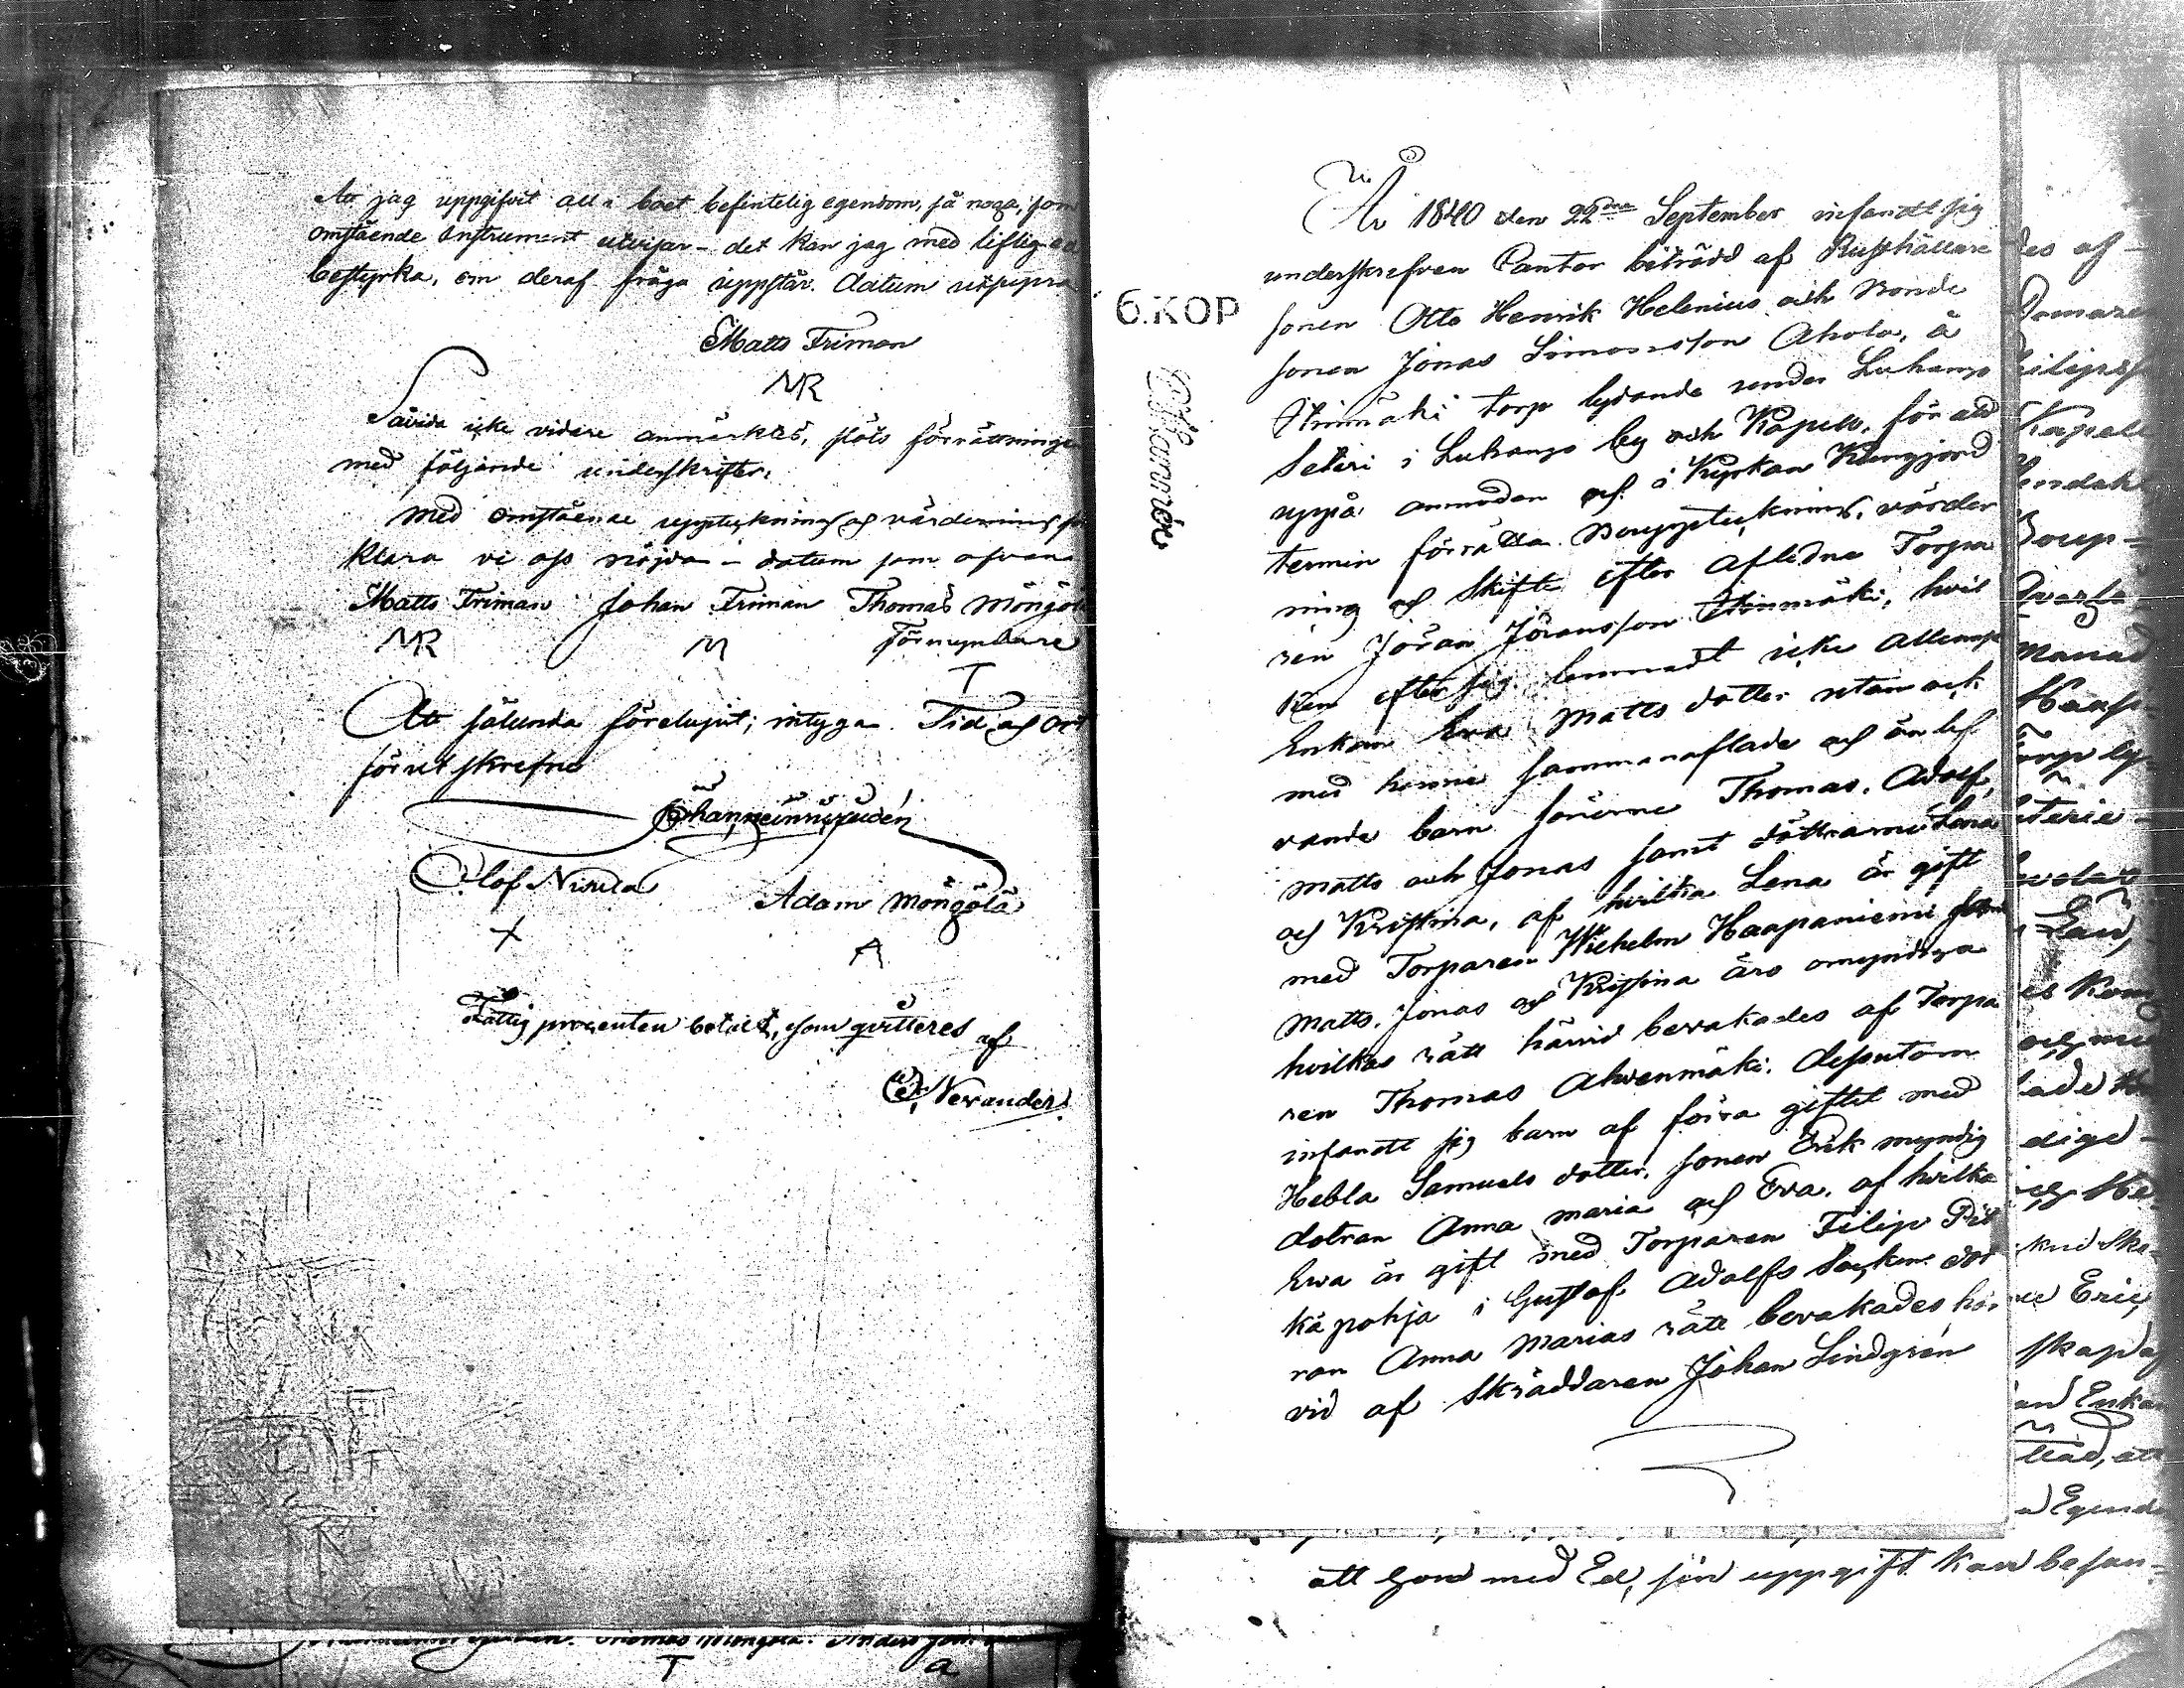 Att jag uppgifvit all i boet befintelig egendom, så noga, som
omstående Instrument utvisar – det kan jag med liflig ed
bestyrka, om deraf fråga uppstår. Datum utsupra
Matts Friman
MR
Såvida icke vidare anmärktes, slöts förrättningen
med följande underskrifter.
Med omstående uppteckning och värdering för
klara vi oss nöjda – datum som ofvan
Matts Friman Johan Friman Thomas Möngölä
MR M Förmyndare
T
Att sålunda förelupit; intyga. Tid och ort
förut skrefne
Olof Nisula
Adam Möngölä
X
A
Fattig procenten betalt, som qvitteres af
Nevander
6.KOP
År 1840 den 22dra September infandt sig
underskrefven Cantor biträdd af Rusthållare
sonen Otto Henrik Helenius och Bonde
sonen Jonas Simonsson Ahola, å
torp lydande under Luhango
Säteri i Luhango by och Kapell, för att
uppå anmodan och i Kyrkan Kungjord
termin förrätta Bouppteckning, värder
ning och skifte efter Aflidne Torpa
ren Jöran Jöransson, hvil
ken efter sig lemnadt icke allenast
Enkan Eva Matts dotter utan ock
med henne sammanaflade och än lef
vande barn sönerne Thomas, Adolf,
Matts och Jonas samt döttrarne Lena
och Kristina, af hvilka Lena är gift
med Torparen Wilhelm Haapaniemi
Matts, Jonas och Kristina äro omyndiga
hvilkas rätt härvid bevakades af Torpa
ren Thomas Ahvenmäki. dessutom
infandt sig barn af förra giftet med
Hebla Samuels dotter, sonen Erik myndig
dotran Anna Maria och Eva, af hvilka
Ewa är gift med Torparen Filip Pit
käpohja i Gustaf Adolfs Socken dot
ran Anna Marias rätt bevakades här
vid af Skräddaren Johan Lindgrén
des af
Kapell
Boup-
Månad
Torp ly-
Erie,
Enkan
Egendo
att Gond med Ed, sin uppgift kan besan-
T
a